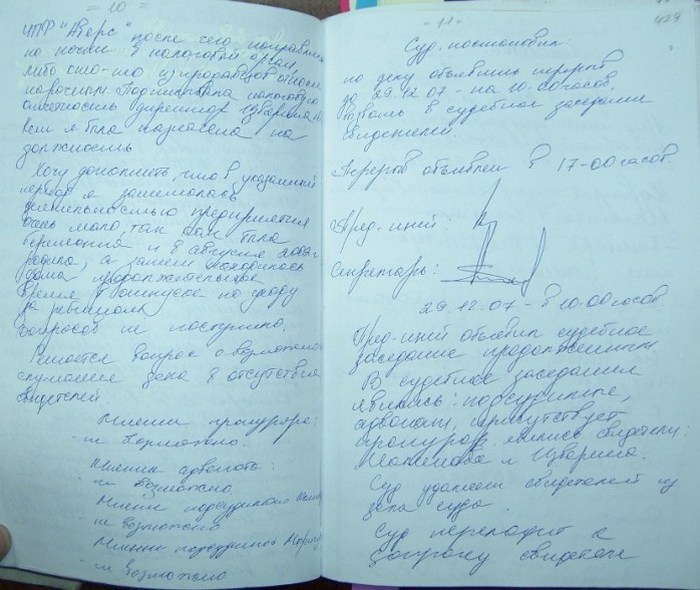 - 10 -
ЧПФ "Аверс" после чего направля
по почте в налоговый орган,
либо кто-то из продавцов относил
нарочным. Подписывала налоговую
отчетность директор Изварина
кем я была назначена на
должность
Хочу дополнить, что в указанный
период я занималась
деятельностью предприятия
очень мало, так как была
беременна и в августе
родила, а затем находилась
дома продолжительное
время в отпуске по уходу
за ребенком
Вопросов не поступило.
Решается вопрос о возможно
слушания дела в отсутствие
свидетелей.
Мнение прокурора:
- возможно.
Мнение адвоката:
- возможно
Мнение подсудимого
- возможно
Мнение подсудимого
- возможно
- 11 -
429
Суд постановил:
по делу объявить перерыв
до 29.12.07 - на 10.00 часов.
Вызвать в судебное заседание
свидетелей.
Перерыв объявлен в 17-00 часов
Пред-щий
Секретарь:
29.12.07 - в 10.00 часов
Пред-щий объявил судебное
заседание продолженным
В судебное заседание
явились: подсудимые,
адвокат, присутствует
прокурор, явились свидетели
и Изварина.
Суд удаляет свидетелей из
зала суда.
Суд переходит к
допросу свидетеля